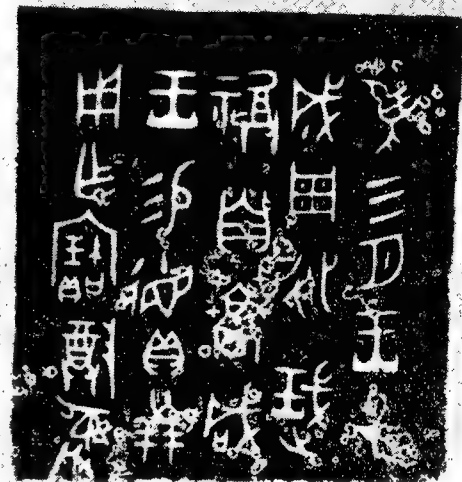 隹三月王才
成周𢓊珷
福自蒿咸
王易德貝廿朋
用乍寶尊彝